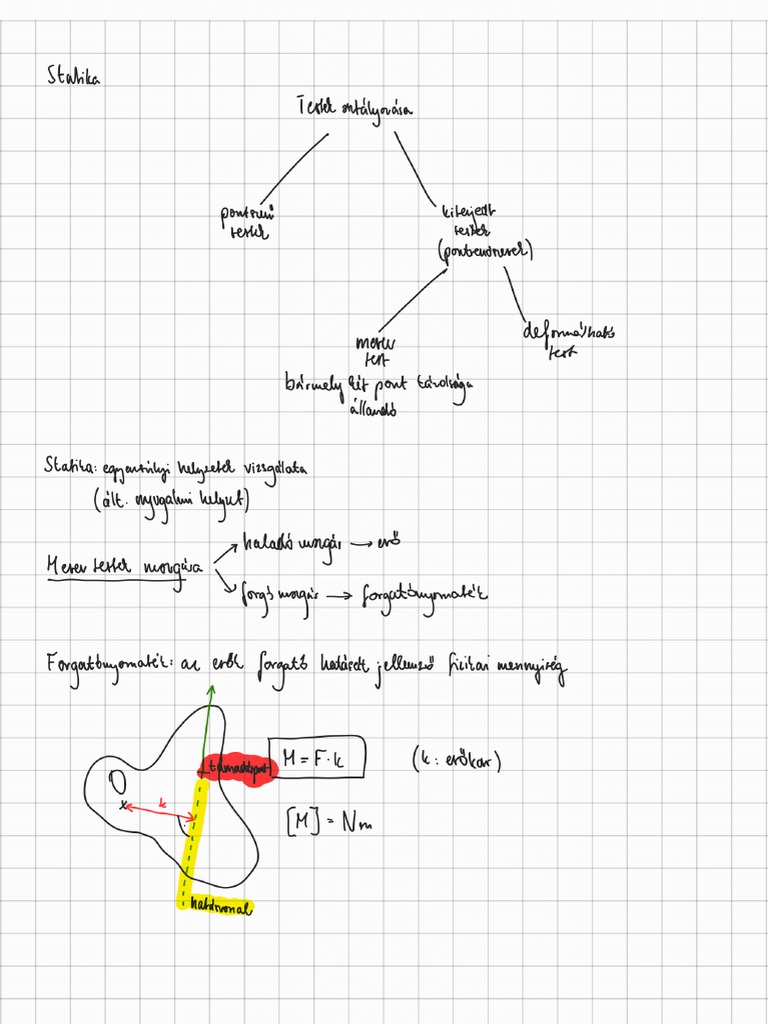 Statika
Testek osztályozása
pontszerű
testek
kiterjedt
testek
(pontrendszerek)
merev
test
deformálható
test
bármely két pont távolsága
állandó
Statika: egyensúlyi helyzetek vizsgálata
(ált. nyugalmi helyzet)
Merev testek mozgása
haladó mozgás → erő
forgó mozgás → forgatónyomaték
Forgatónyomaték: az erők forgató hatását jellemző fizikai mennyiség
támadáspont
M = F·k
(k: erőkar)
O
x
k
[M] = Nm
hatásvonal